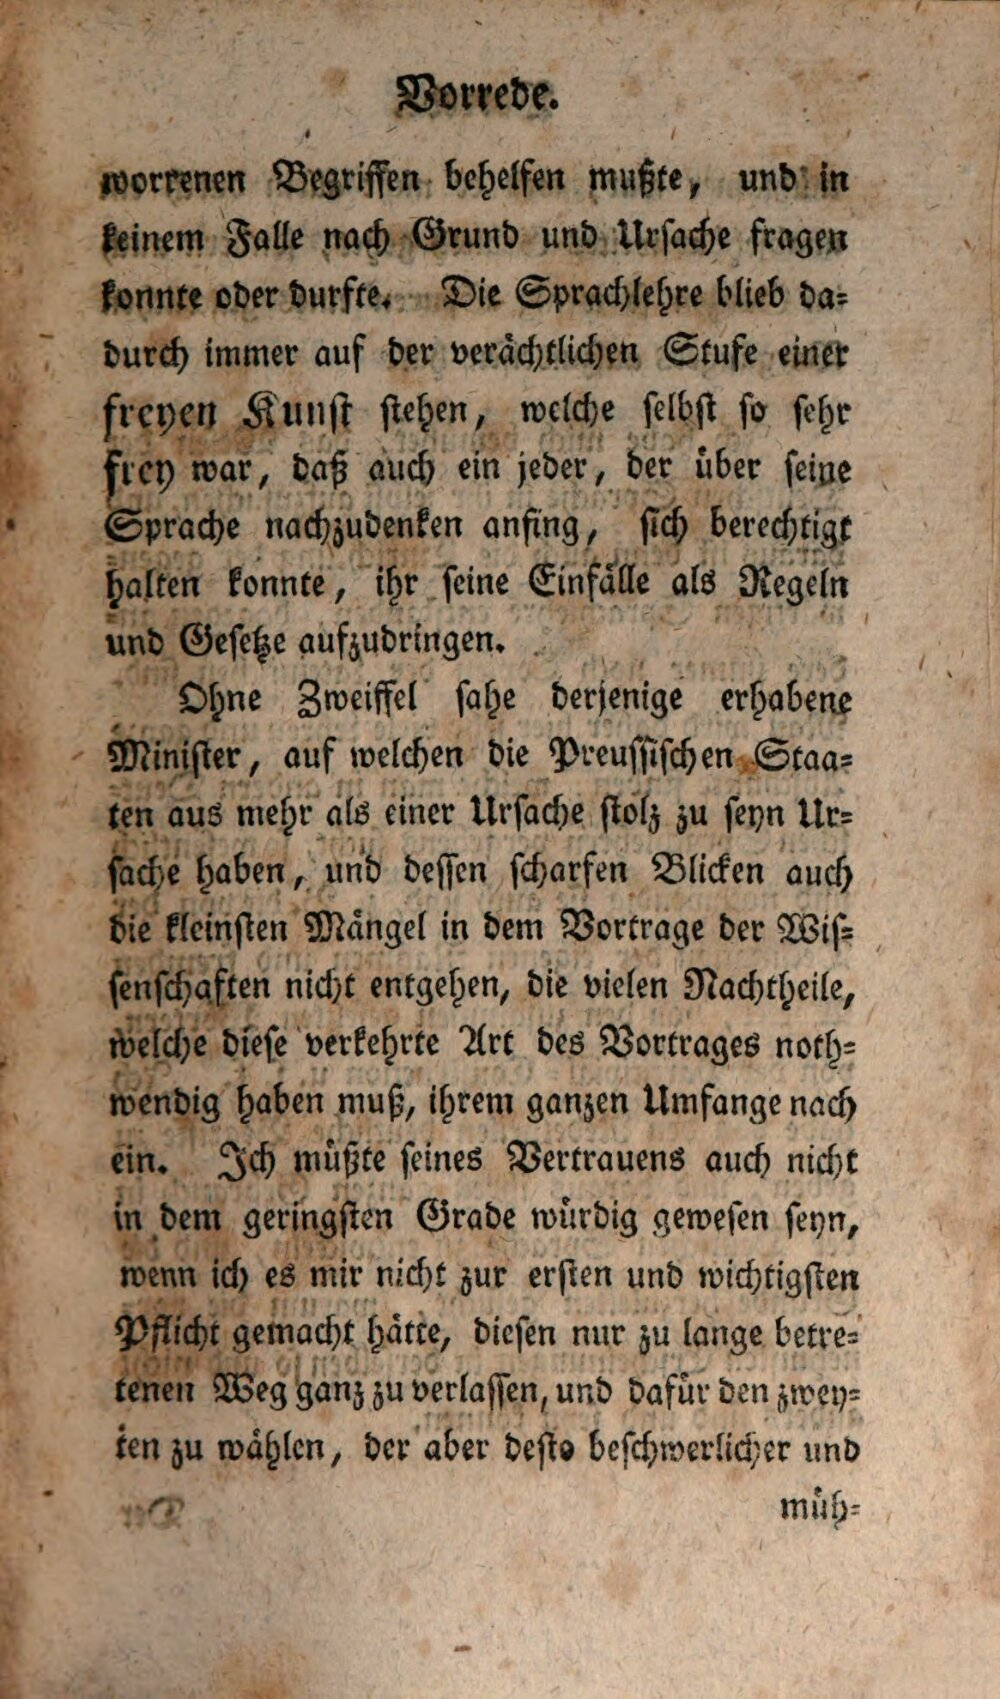 Vorrede.
worrenen Begriffen behelfen mußte, und in
keinem Falle nach Grund und Ursache fragen
konnte oder durfte. Die Sprachlehre blieb da=
durch immer auf der verächtlichen Stufe einer
freyen Kunst stehen, welche selbst so sehr
frey war, daß auch ein jeder, der über seine
Sprache nachzudenken anfing, sich berechtigt
halten konnte, ihr seine Einfälle als Regeln
und Gesetze aufzudringen.
Ohne Zweiffel sahe derjenige erhabene
Minister, auf welchen die Preussischen Staa=
ten aus mehr als einer Ursache stolz zu seyn Ur=
sache haben, und dessen scharfen Blicken auch
die kleinsten Mängel in dem Vortrage der Wis=
senschaften nicht entgehen, die vielen Nachtheile,
welche diese verkehrte Art des Vortrages noth=
wendig haben muß, ihrem ganzen Umfange nach
ein. Ich müßte seines Vertrauens auch nicht
in dem geringsten Grade würdig gewesen seyn,
wenn ich es mir nicht zur ersten und wichtigsten
Pflicht gemacht hätte, diesen nur zu lange betre=
tenen Weg ganz zu verlassen, und dafür den zwey=
ten zu wählen, der aber desto beschwerlicher und
müh=